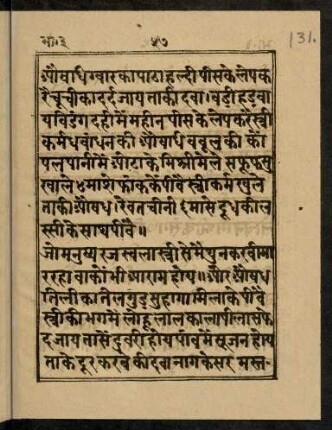 भाः३ ५७ 131.
औषधि ग्वारका पाठा हल्दी पीसके लेप क
रै चूचीका दर्द जाय ताकी दवा। बडी हडवा
यविडंग दहीमें महीन पीसके लेप करै स्त्री
कर्मधबांधनकी औषधि बबूलकी कों
पल पानीमें औटाके मिश्री मेले सफूफ सु
खाले ४ माशे फाकके पीवै स्त्री कर्म खुले
ताकी औषध रेवतचीनी ८ मासे दूधकी ल
स्सीके साथ पीवै॥
जो मनुष्य रजस्वला स्त्री सेमैथुन करवीमा
र रहा वाकों भी आराम होय॥ और औषध
तिलीका तेल गुड सुहागा मिलाके पीवै
स्त्रीकी भगमें लोहू लाल काला पीला सफे
द जाय तासें दुवरी होय पांवमें सूजन होय
ताके दूर करबेकी दवा नागकेसर मस्त-